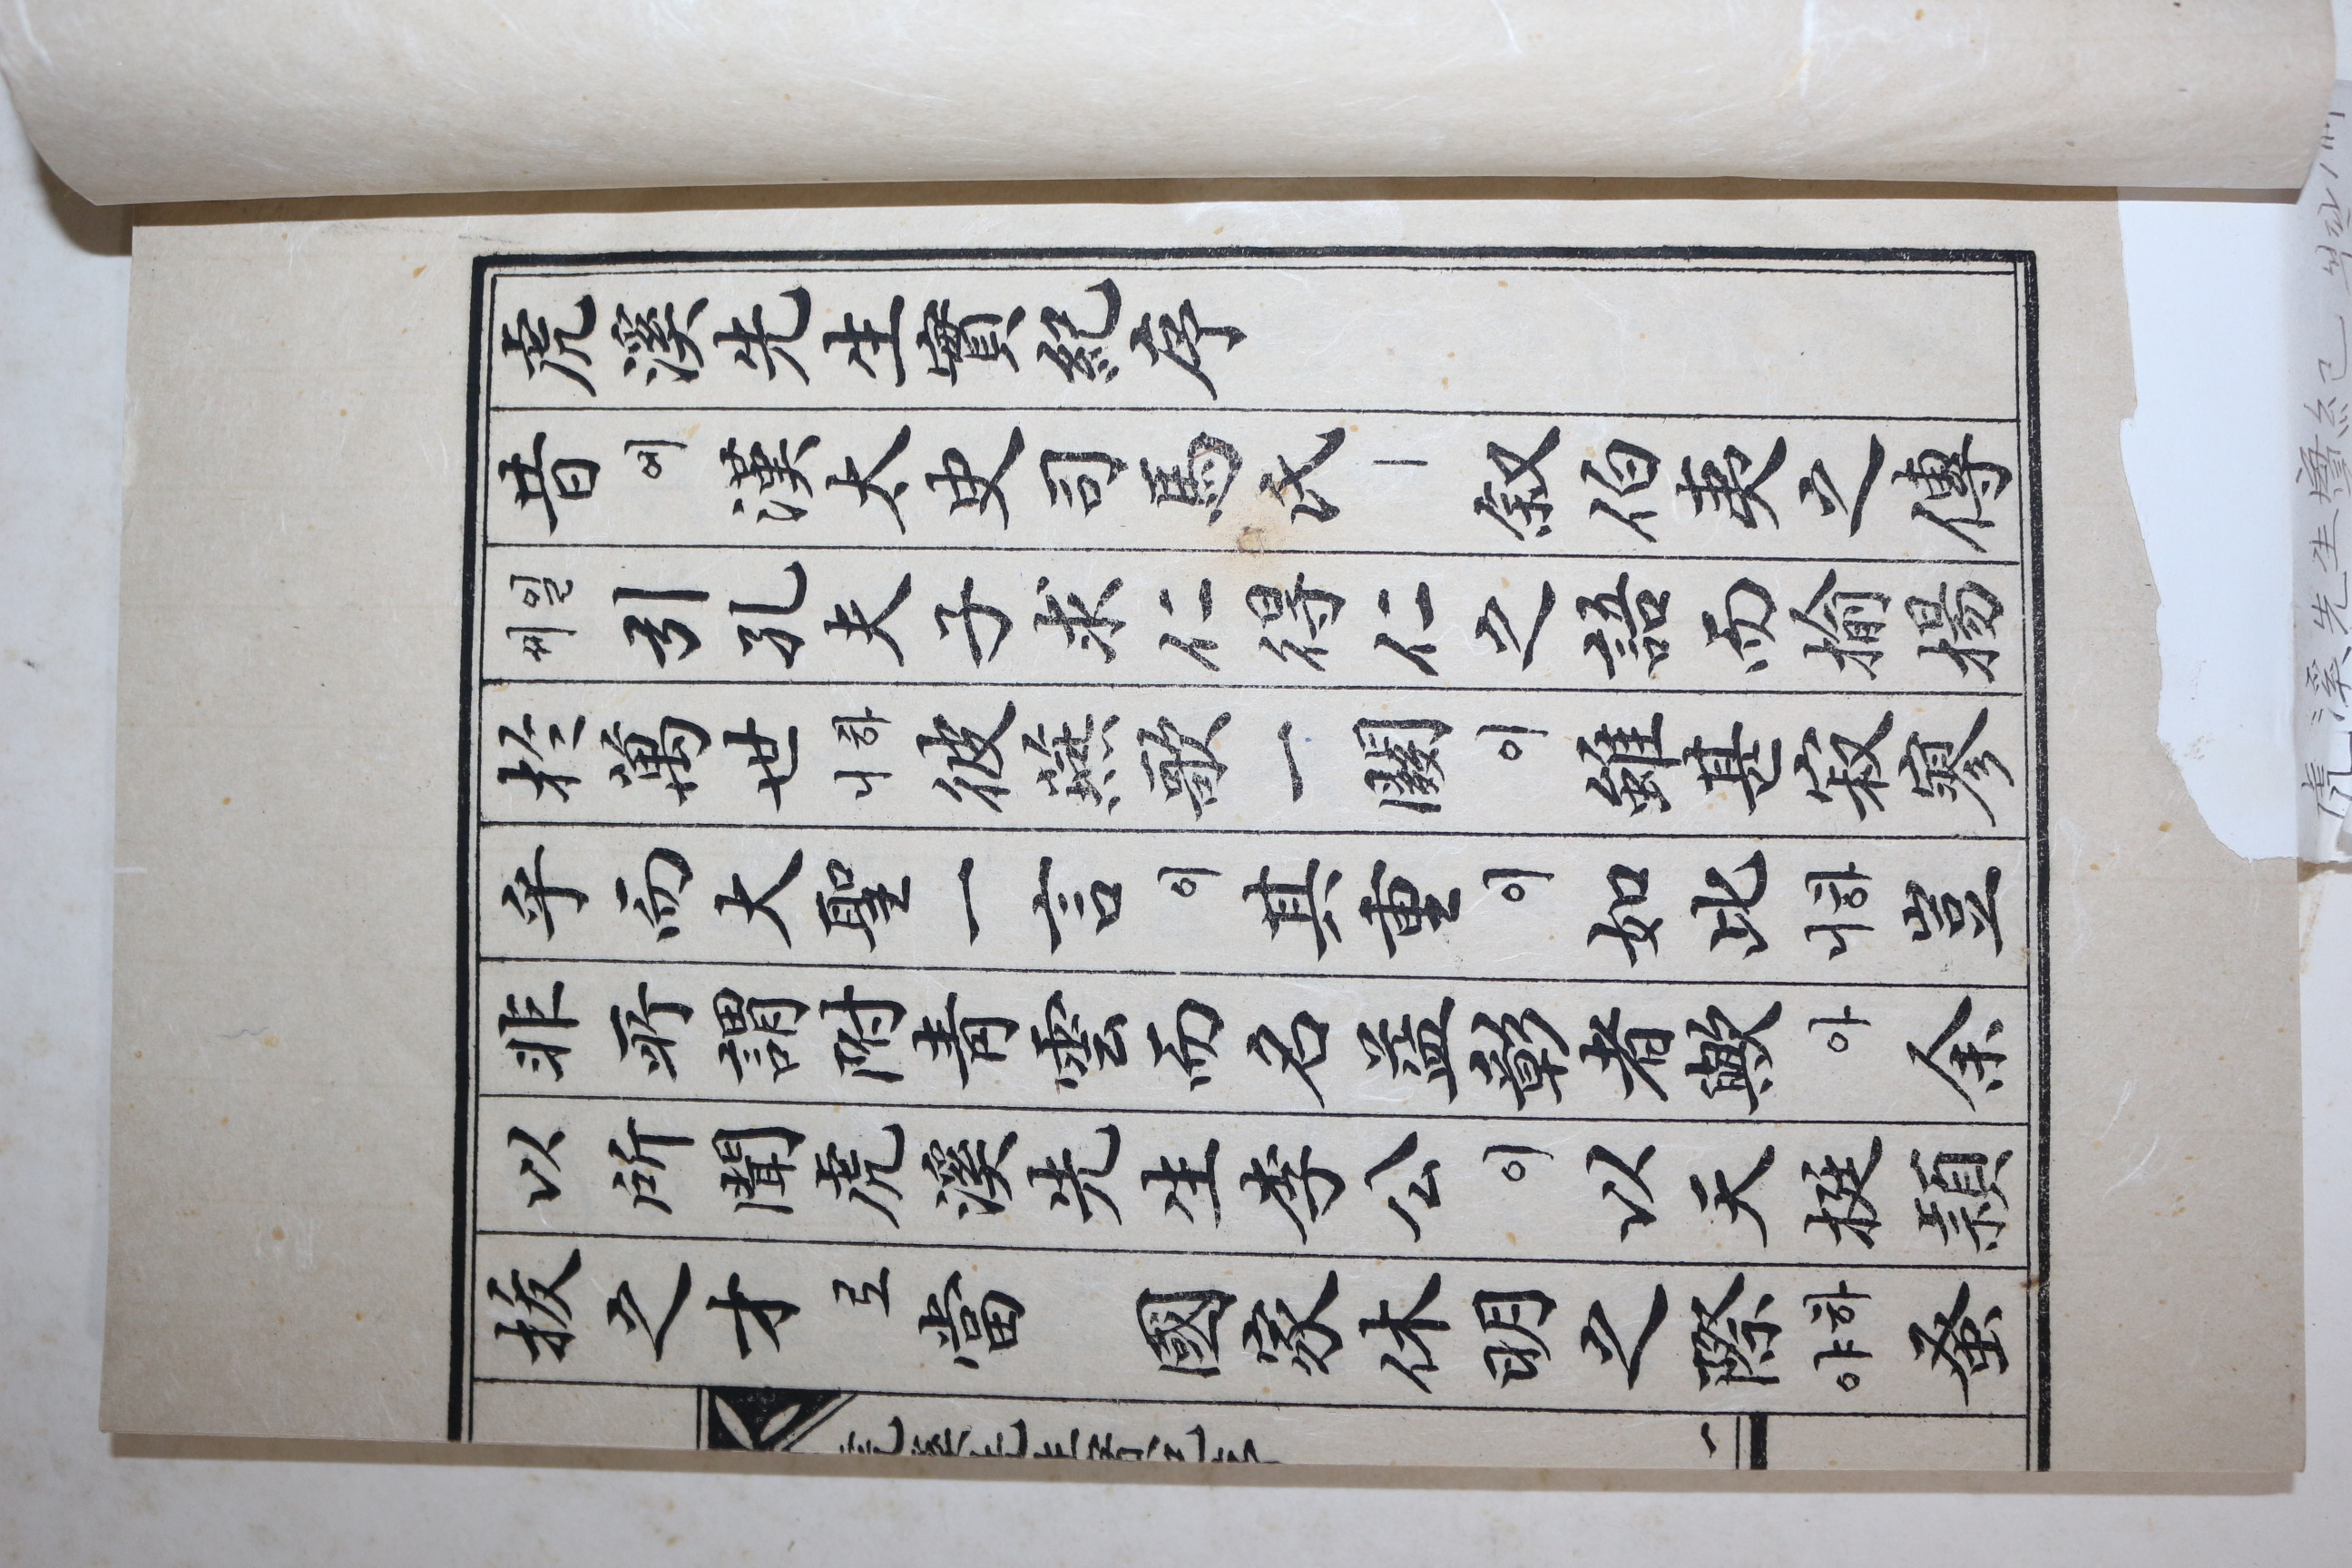 虎溪先生實紀序
昔에漢太史司馬氏ㅣ叙伯夷之傳
일쎄引孔夫子求仁得仁之語而揄揚
於萬世하니彼歌一闋이雖甚寂寥
乎而大聖一言이其重이如此하니豈
非所謂附青雲而名益彰者歟아余
以所聞虎溪先生李公이以天挺穎
拔之才로當 國家休明之際하야蚤
一
虎溪先生實紀